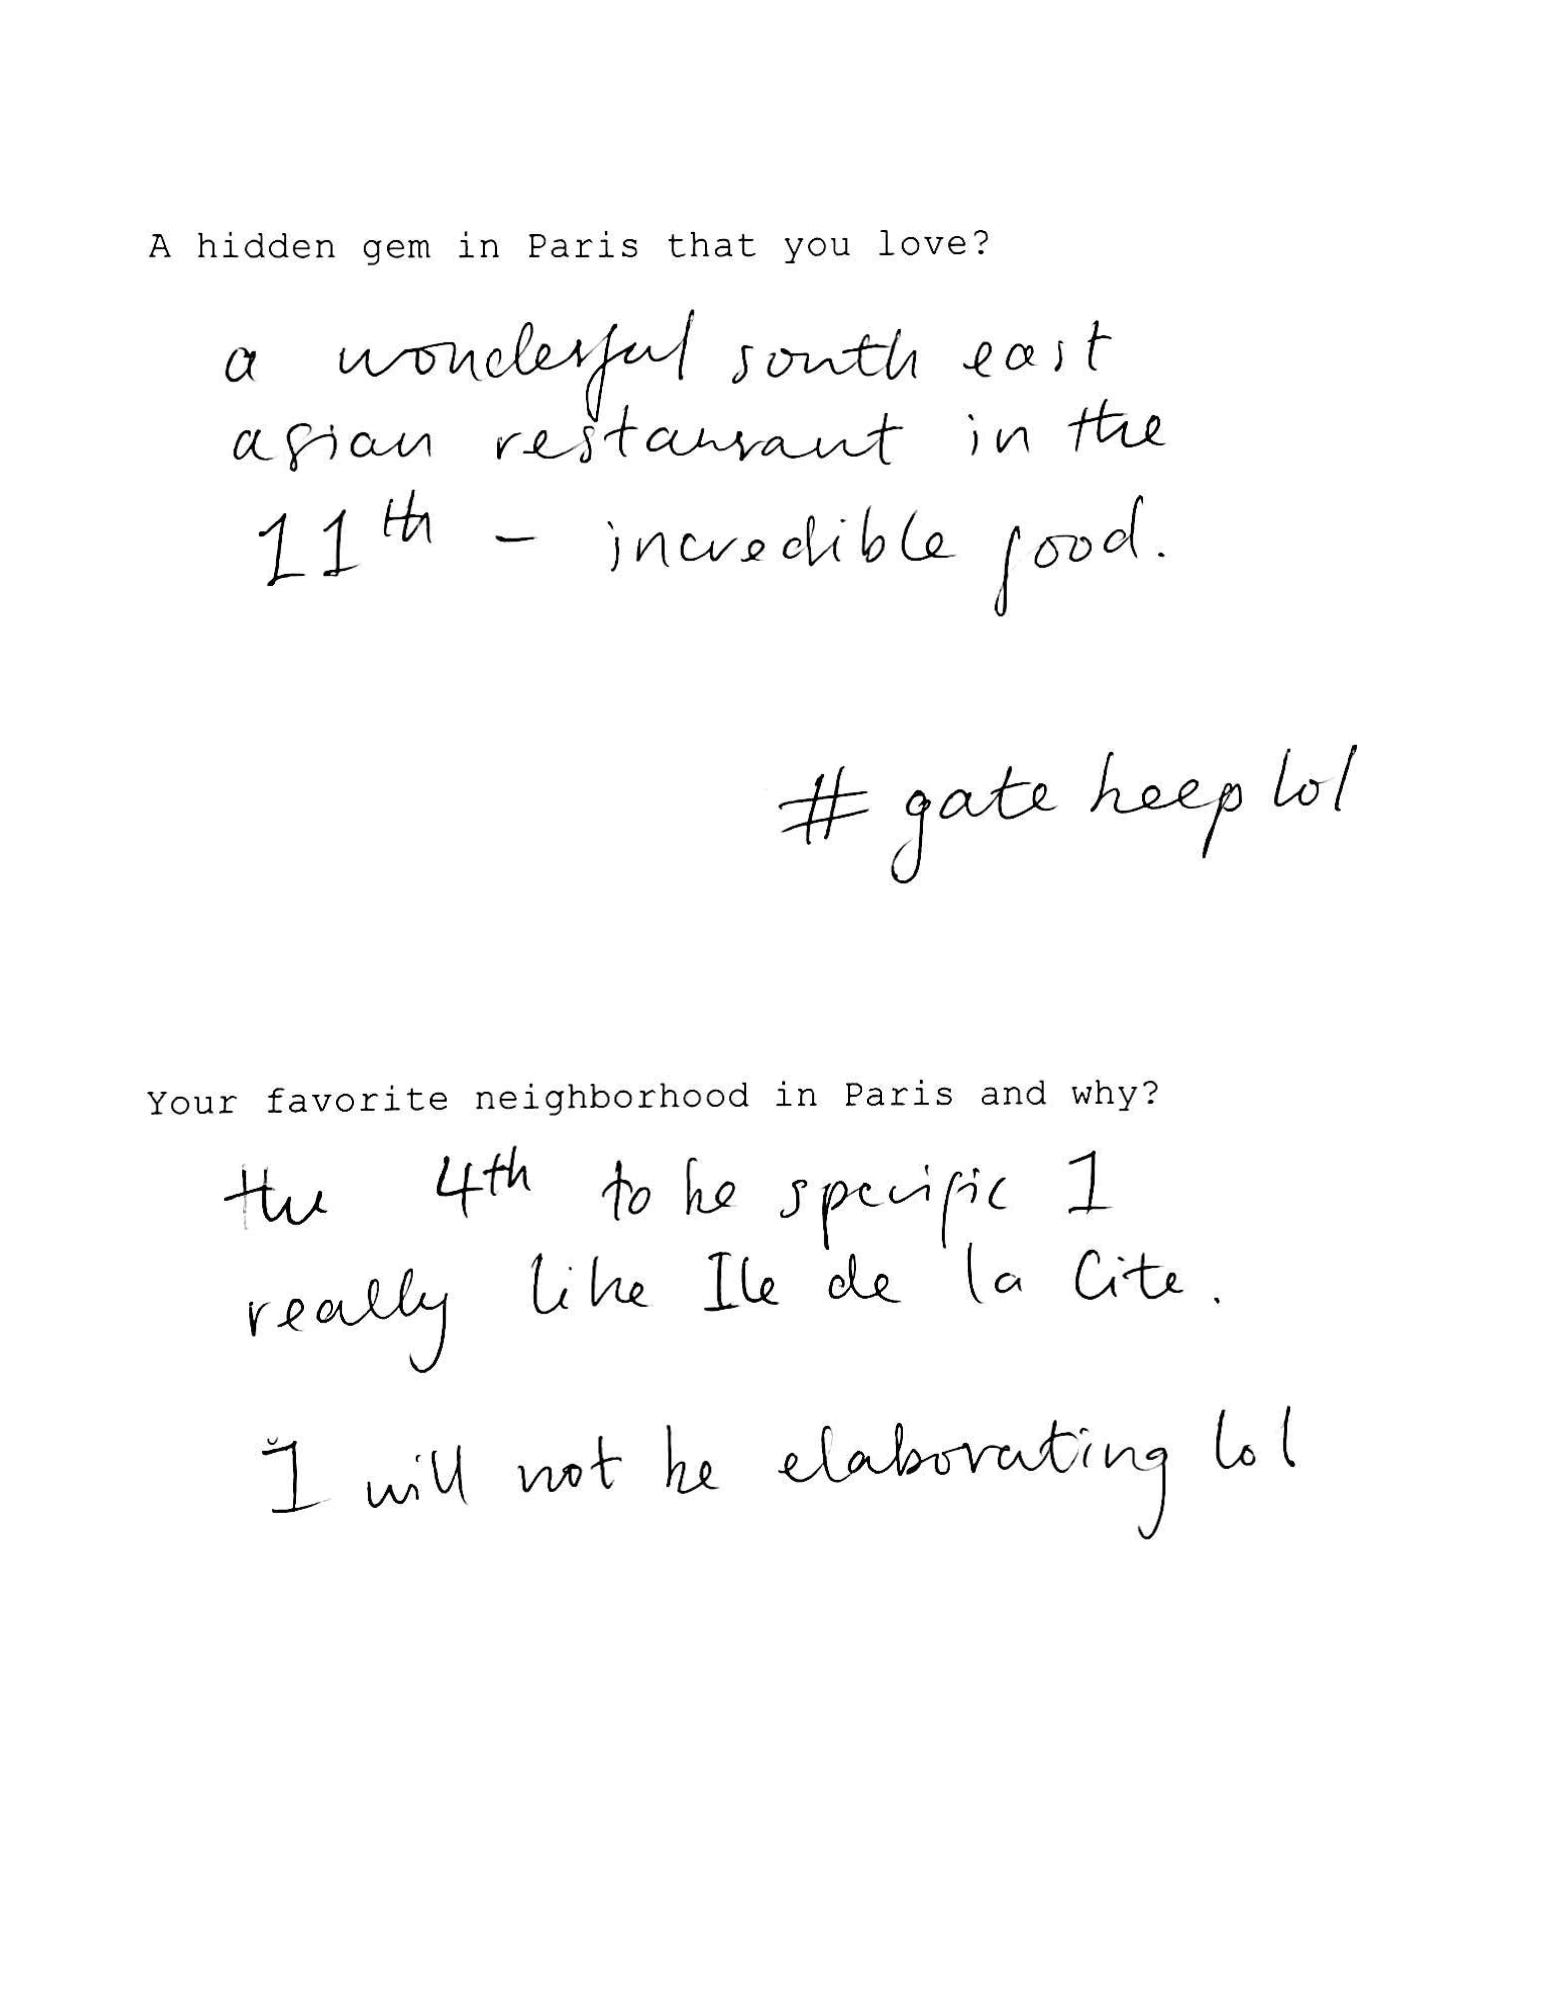 A hidden gem in Paris that you love?
a wonderful south east
asian restaurant in the
11th - incredible food.
# gate keep lol
Your favorite neighborhood in Paris and why?
the 4th to be specific I
really like Ile de la Cite.
I will not be elaborating lol